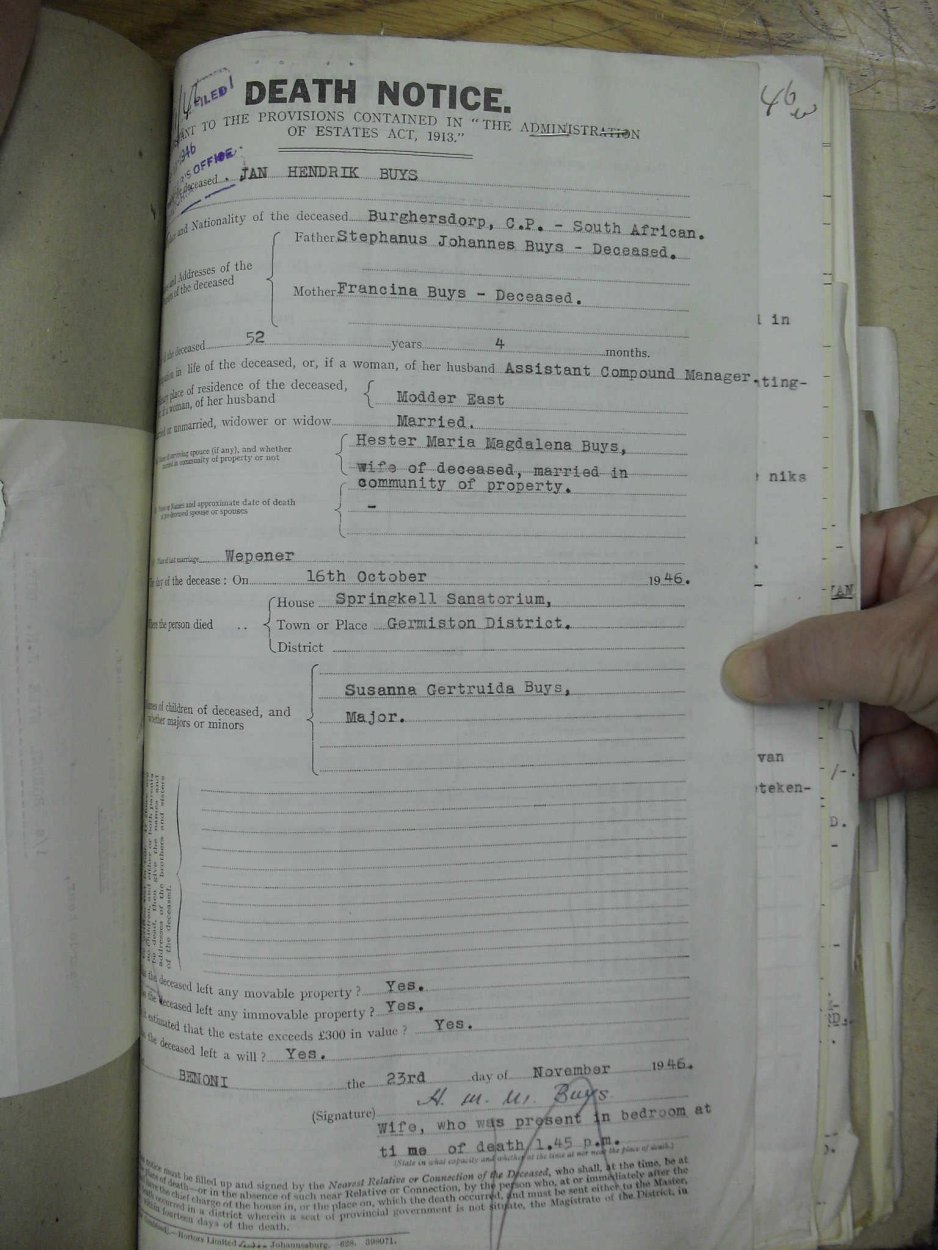 FILED
46
DEATH NOTICE.
TO THE PROVISIONS CONTAINED IN "THE ADMINISTRATION
OF ESTATES ACT, 1913."
OFFICE
deceased JAN HENDRIK BUYS
and Nationality of the deceased Burghersdorp, C.P. - South African.
Father Stephanus Johannes Buys - Deceased.
and Addresses of the
of the deceased
Mother Francina Buys - Deceased.
in
the deceased 52 years 4 months.
in life of the deceased, or, if a woman, of her husband Assistant Compound Manager.
ting-
place of residence of the deceased,
woman, of her husband Modder East
or unmarried, widower or widow Married.
surviving spouse (if any), and whether
married in community of property or not
Hester Maria Magdalena Buys,
wife of deceased, married in
community of property.
niks
or Names and approximate date of death
spouse or spouses
-
Place of last marriage Wepener
day of the decease : On 16th October 1946.
the person died .. House Springkell Sanatorium,
Town or Place Germiston District.
District
Susanna Gertruida Buys,
of children of deceased, and
whether majors or minors Major.
van
eteken-
dead, then give the names and
addresses of the brothers and sisters
of the deceased.
the deceased left any movable property ? Yes.
the deceased left any immovable property ? Yes.
estimated that the estate exceeds £300 in value ? Yes.
the deceased left a will ? Yes.
BENONI the 23rd day of November 1946.
(Signature) H. M. M. Buys
Wife, who was present in bedroom at
ti me of death 1.45 p.m.
(State in what capacity and whether at the time at or near the place of death.)
notice must be filled up and signed by the Nearest Relative or Connection of the Deceased, who shall, at the time, be at
place of death—or in the absence of such near Relative or Connection, by the person who, at or immediately after the
the chief charge of the house in, or the place on, which the death occurred, and must be sent either to the Master,
occurred in a district wherein a seat of provincial government is not situate, the Magistrate of the District, in
fourteen days of the death.
Hortors Limited Johannesburg. 628. 398071.